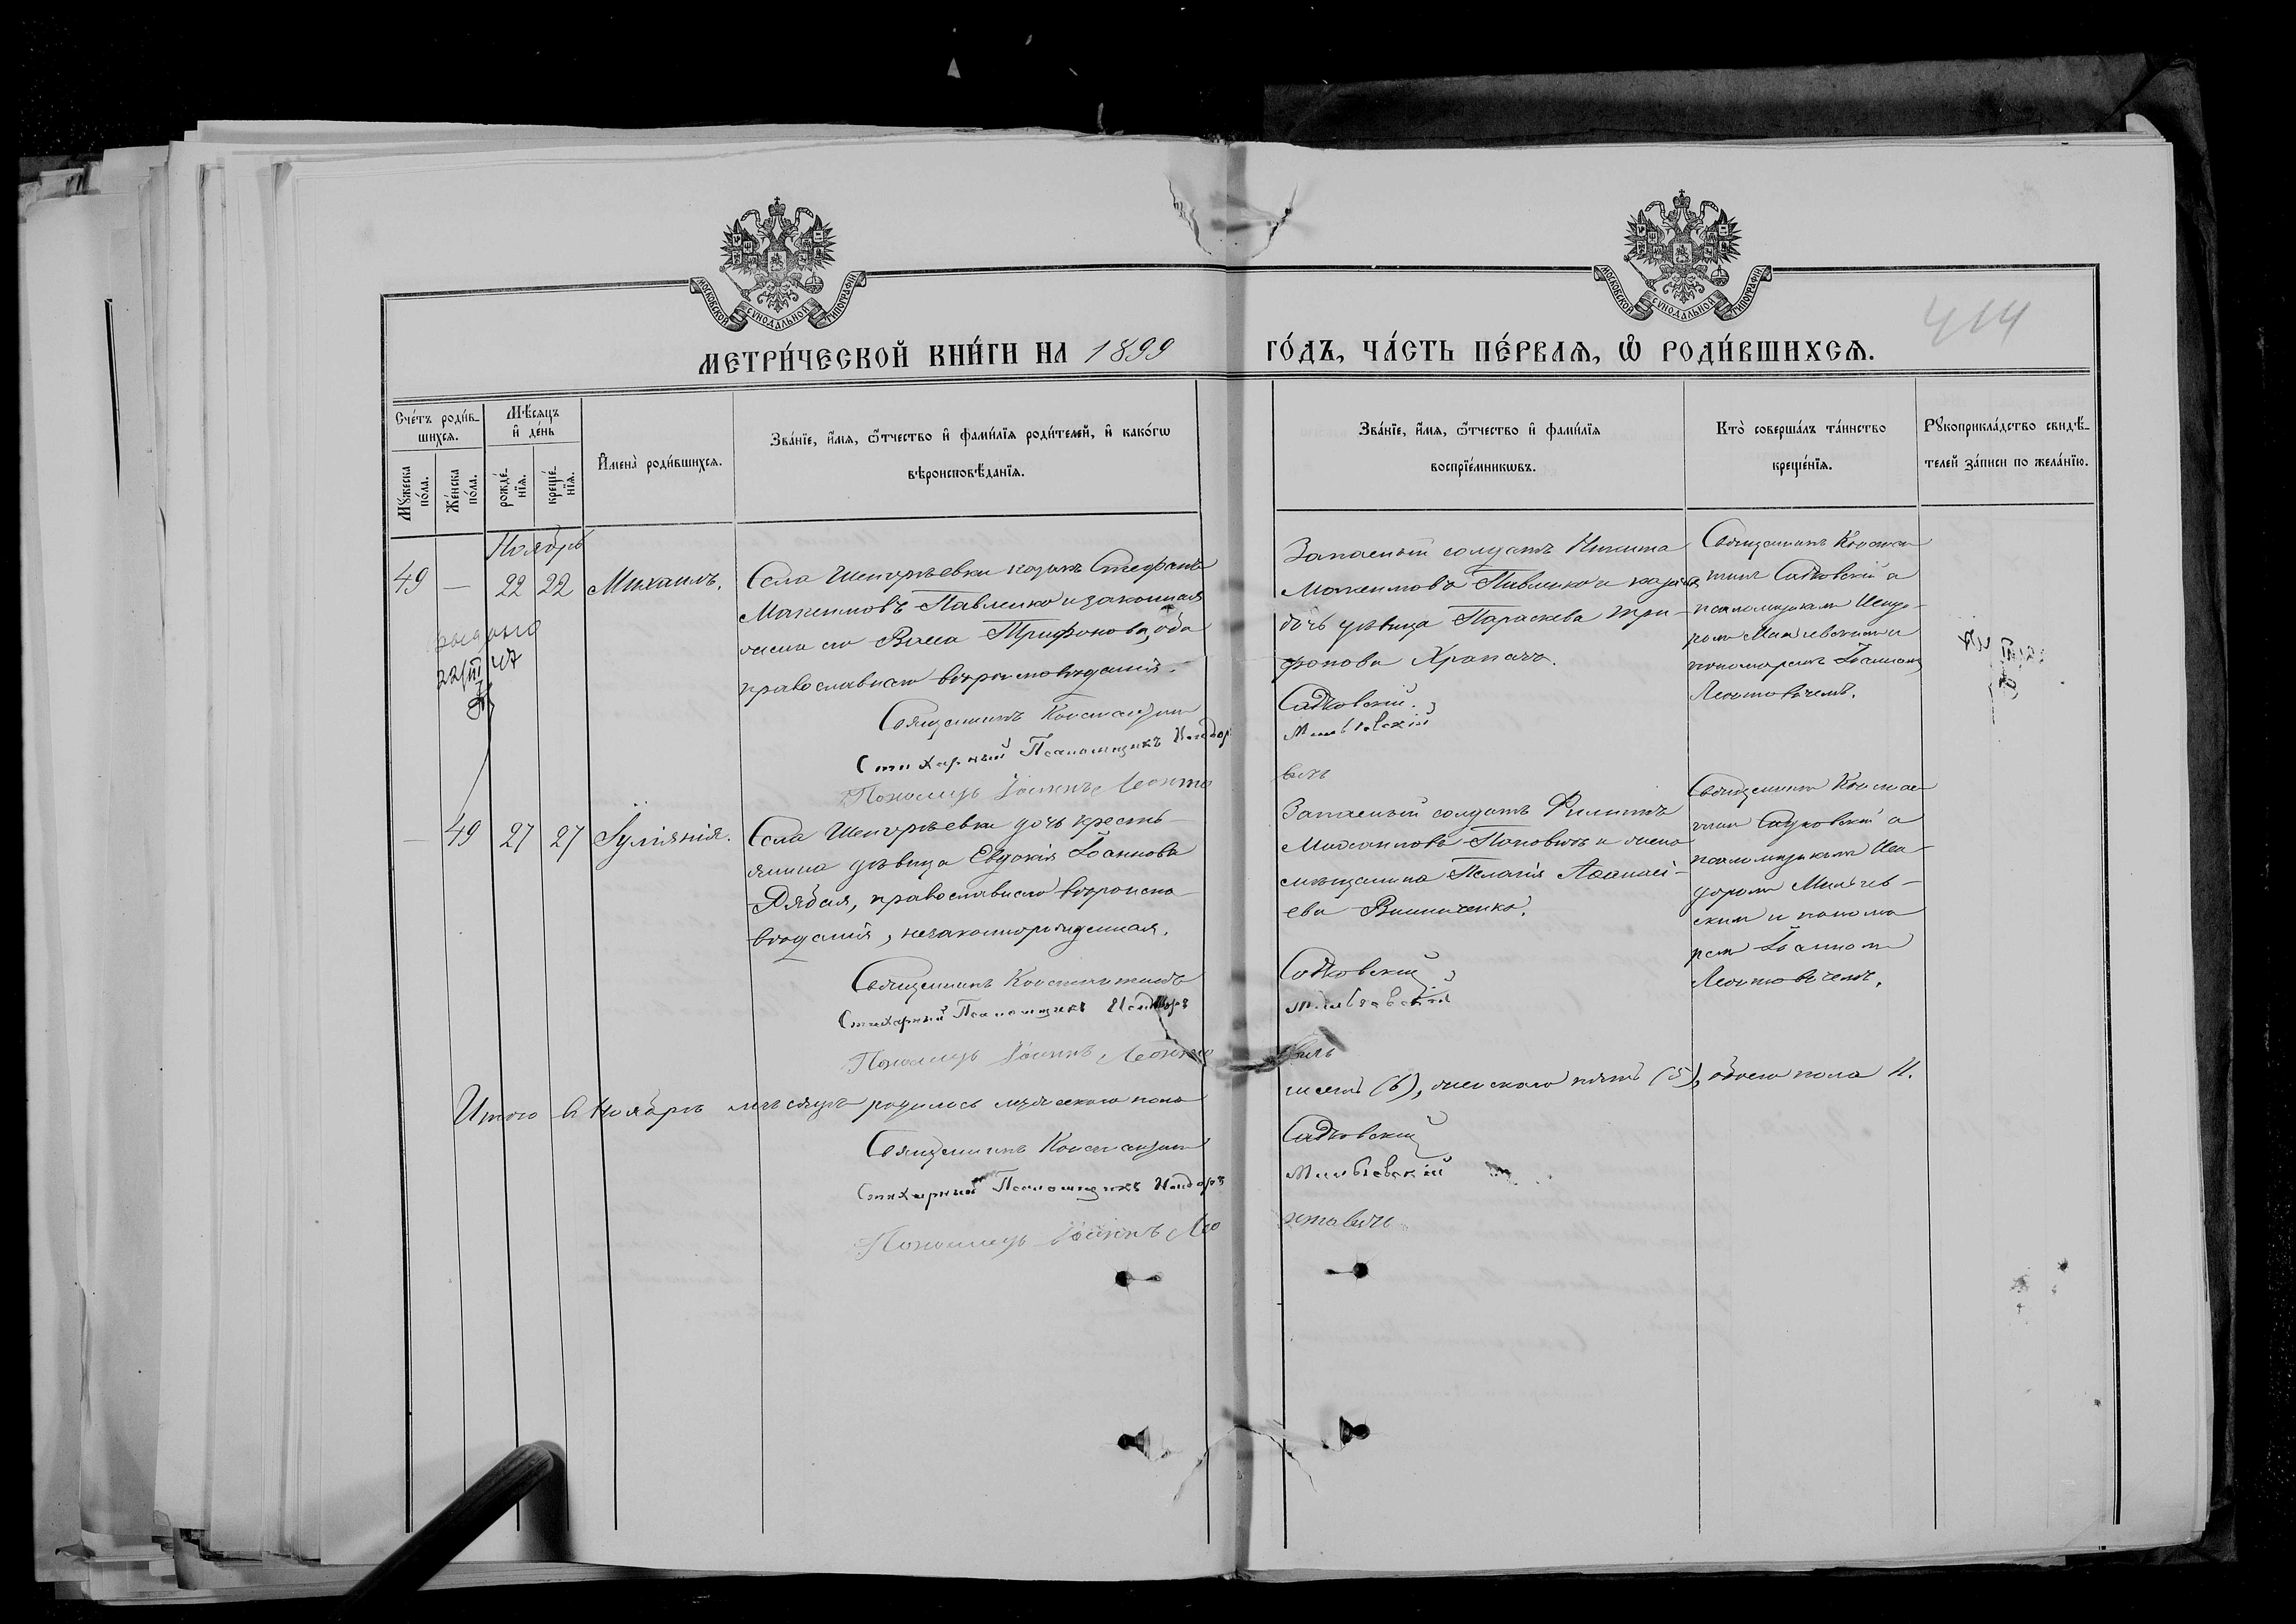 МОСКОВСКОЙ СѴНОДАЛЬНОЙ ТИПОГРАФІИ
МОСКОВСКОЙ СѴНОДАЛЬНОЙ ТИПОГРАФІИ
414
МЕТРИ́ЧЕСКОЙ КНИ́ГИ НА 1899
ГО́ДЪ, ЧА́СТЬ ПЕ́РВАЯ, Ѡ РОДИ́ВШИХСЯ.
Сче́тъ роди́в-
шихся.
Мꙋжеска
по́ла.
Же́нска
по́ла.
Мѣ́сяцъ
и҆ де́нь
рожде́-
нїя.
креще́-
нїя.
И҆мена̀ роди́вшихся.
Зва́нїе, и҆́мя, ѻ҆́тчество и҆ фами́лїя роди́телей, и҆ како́гѡ
вѣроисповѣ́данїя.
Зва́нїе, и҆́мя, ѻ҆́тчество и҆ фами́лїя
воспрїе́мникѡвъ.
Кто̀ соверша́лъ та́инство
креще́нїя.
Рꙋкоприкла́дство свидѣ́-
телей за́писи по жела́нїю.
Ноябрь
49 — 22 22 Михаилъ.
Села казакъ Стефанъ
Максимовъ Павленко и законная
жена его Трифонова, оба
православнаго вѣроисповѣданія.
Священникъ Константинъ
Стихарный Псаломщикъ Исидоръ
Пономарь Іоаннъ Леонто
Запасный солдатъ Никита
Максимовъ Павленко и казака
дочь дѣвица Параскева Три-
фонова Храпачъ.
Садковскій
вичъ
Священникъ Констан-
тинъ Садковскій с
псаломщикомъ Исидо-
ромъ и
пономаремъ Іоанномъ
Леонтовичемъ.
выдано
22/III 47
— 49 27 27 Іуліанія.
Села дочь кресть-
янина дѣвица Евдокія Іоаннова
православнаго вѣроиспо-
вѣданія, незаконнорожденная.
Священникъ Константинъ
Стихарный Псаломщикъ Исидоръ
Пономарь Іоаннъ Леонто
Запасный солдатъ Филиппъ
Михаиловъ Поповичъ и жена
мѣщанина Пелагія Аѳанасі-
ева Винниченко.
Садковскій
вичъ
Священникъ Констан-
тинъ Садковскій с
псаломщикомъ Иси-
доромъ
и понома-
ремъ Іоанномъ
Леонтовичемъ.
Итого въ Ноябрѣ мѣсяцѣ родилось мужескаго пола
шесть (6), женскаго пять (5), обоего пола 11.
Священникъ Константинъ
Садковскій
Стихарный Псаломщикъ Исидоръ
Пономарь Іоаннъ Лео
нтовичъ